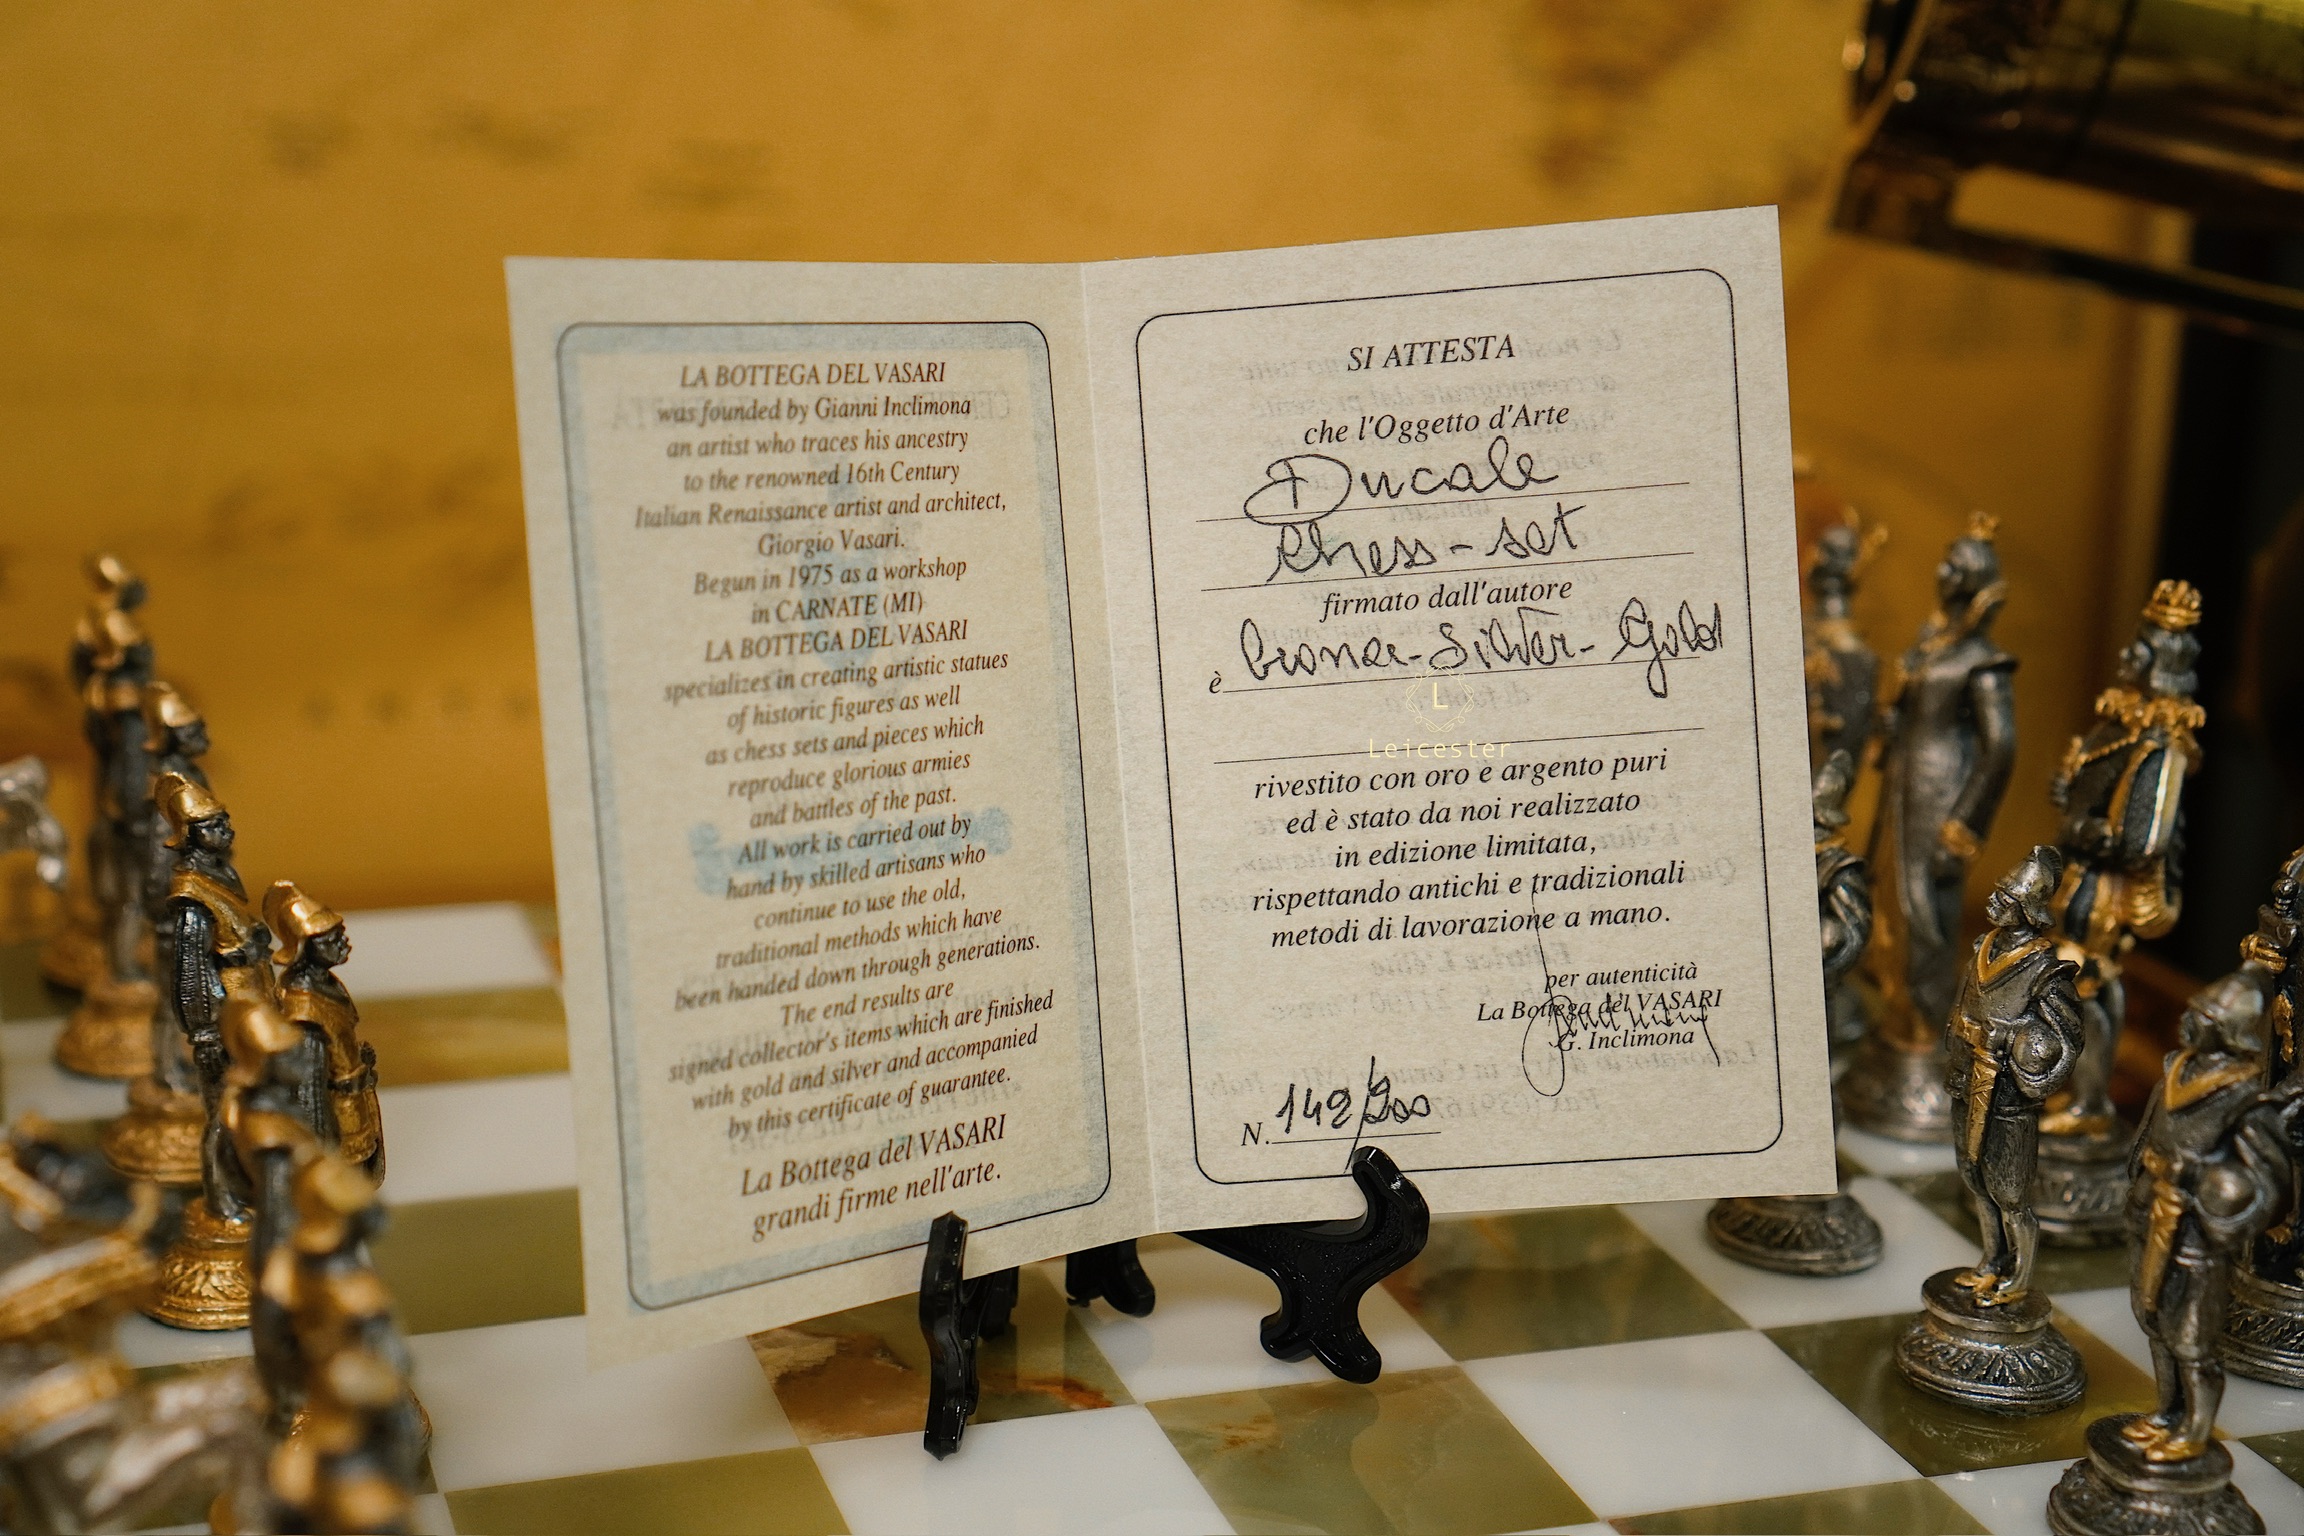 LA BOTTEGA DEL VASARI
was founded by Gianni Inclimona
an artist who traces his ancestry
to the renowned 16th Century
Italian Renaissance artist and architect,
Giorgio Vasari.
Begun in 1975 as a workshop
in CARNATE (MI)
LA BOTTEGA DEL VASARI
specializes in creating artistic statues
of historic figures as well
as chess sets and pieces which
reproduce glorious armies
and battles of the past.
All work is carried out by
hand by skilled artisans who
continue to use the old,
traditional methods which have
been handed down through generations.
The end results are
signed collector's items which are finished
with gold and silver and accompanied
by this certificate of guarantee.
La Bottega del VASARI
grandi firme nell'arte.
SI ATTESTA
che l'Oggetto d'Arte
Ducale
Chess-set
firmato dall'autore
è bronze-Silver-Gold
L
Leicester
rivestito con oro e argento puri
ed è stato da noi realizzato
in edizione limitata,
rispettando antichi e tradizionali
metodi di lavorazione a mano.
per autenticità
La Bottega del VASARI
G. Inclimona
N. 142/900